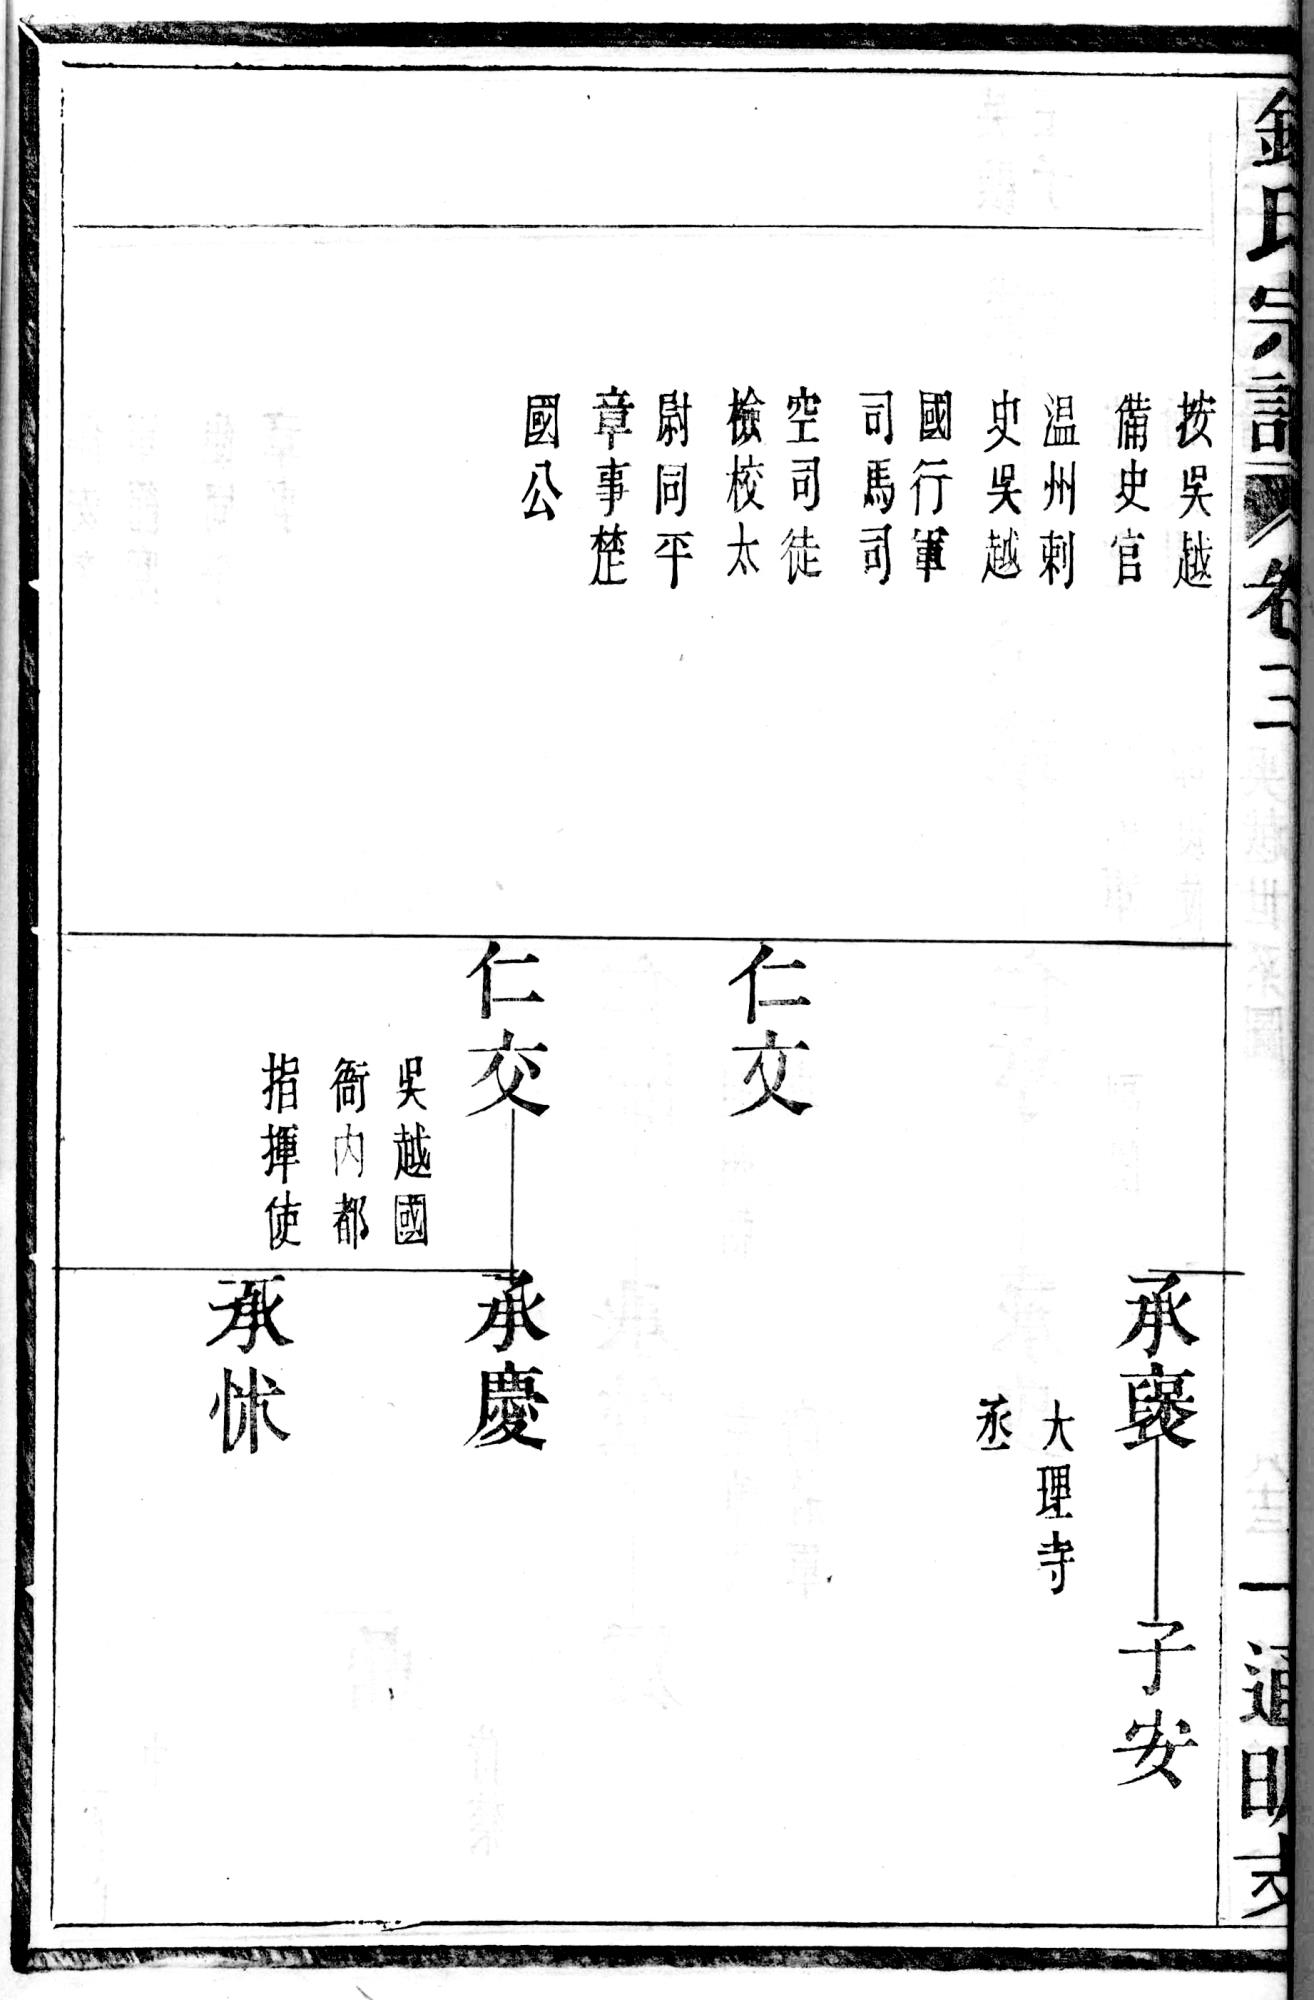 錢氏宗譜 卷二
一 通明支
按吳越
備史官
温州刺
史吳越
國行軍
司馬司
空司徒
檢校太
尉同平
章事楚
國公
仁文
仁交
吳越國
衙內都
指揮使
承裒
大理寺
丞
承慶
承怵
子安